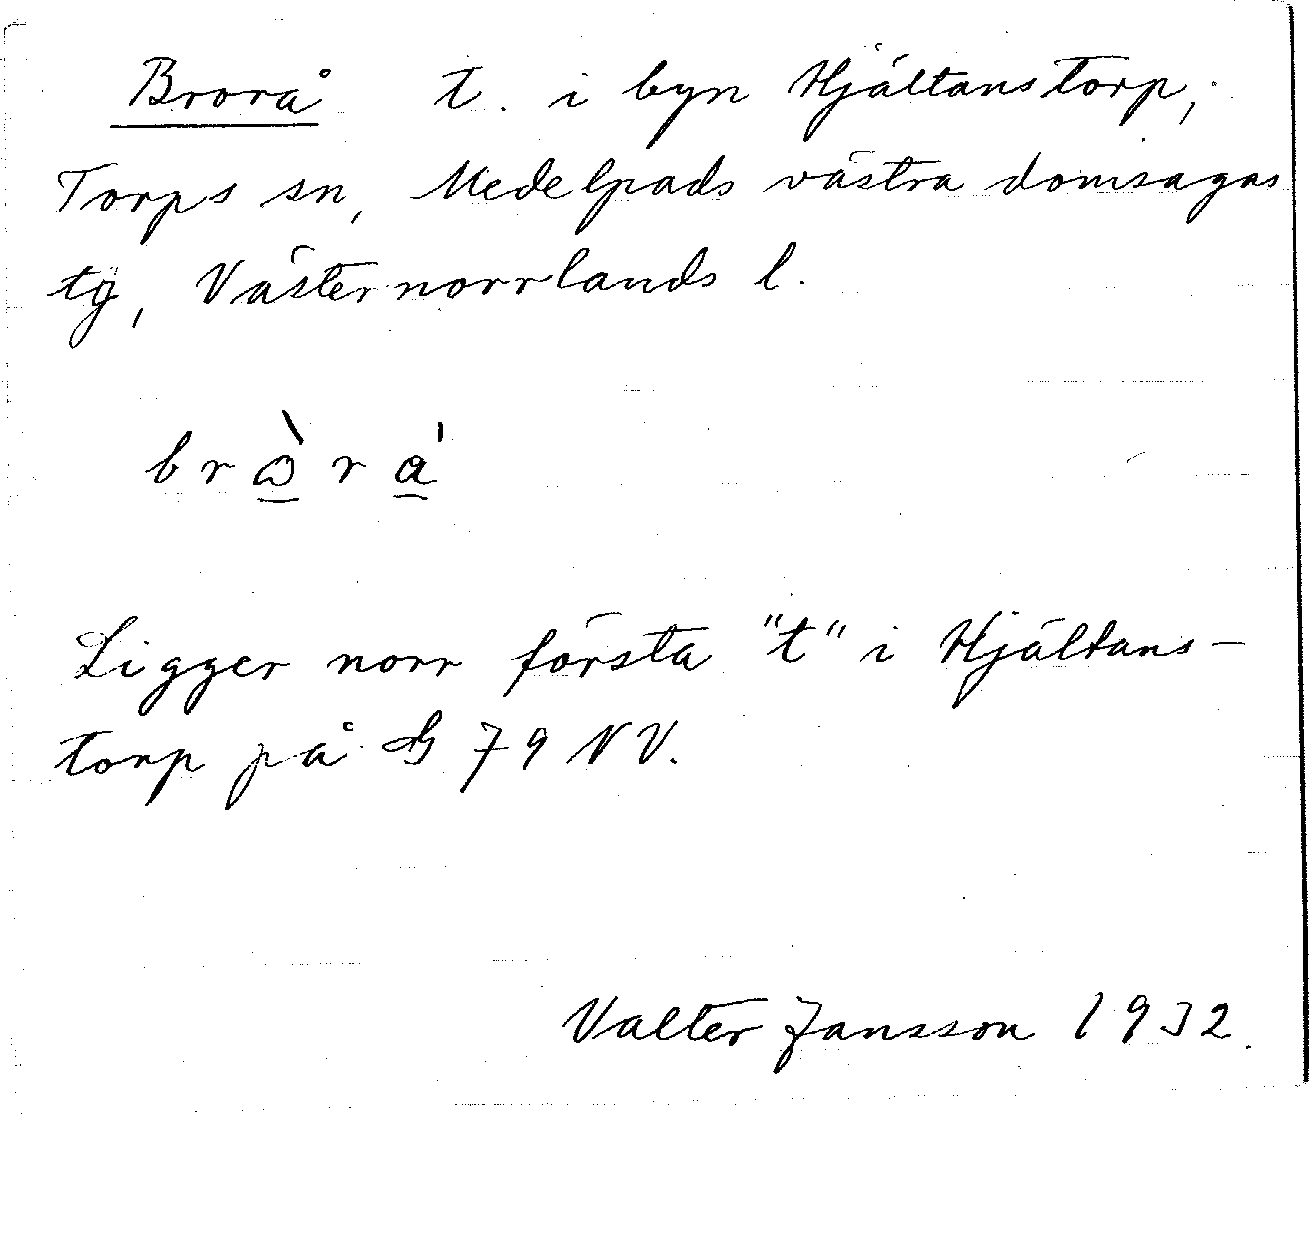 Brorå t. i byn Hjältanstorp,
Torps sn, Medelpads västra domsagas
tg, Västernorrlands l.
brὼra̍
Ligger norr första "t" i Hjältans-
torp på G 79 NV.
Valter Jansson 1932.